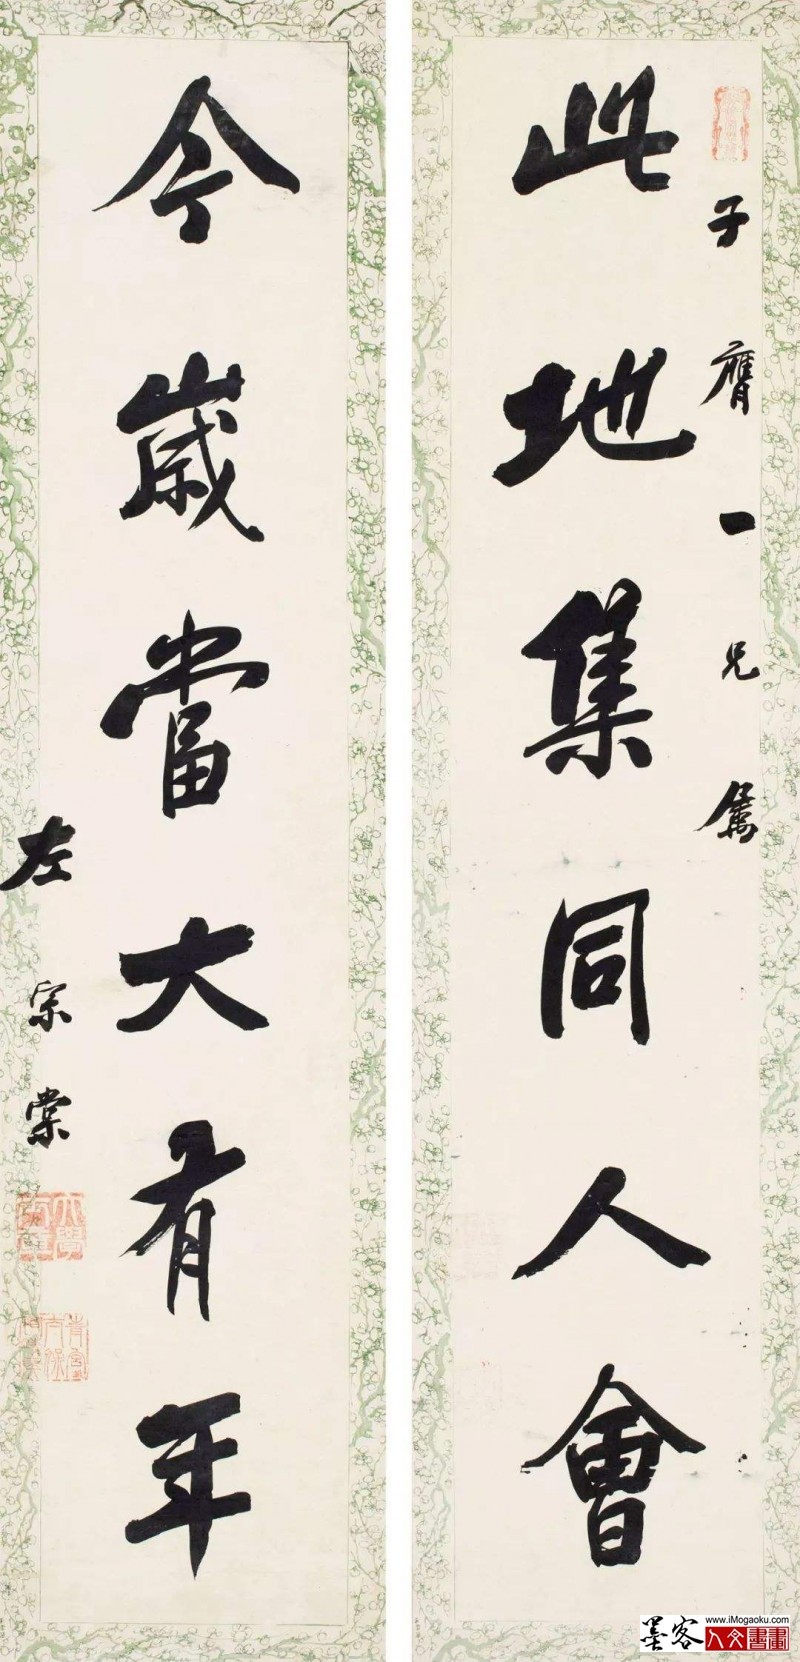 子膺一兄属
此地集同人會
今歲當大有年
左宗棠
www.iMogaoku.com
墨客
人文書畫